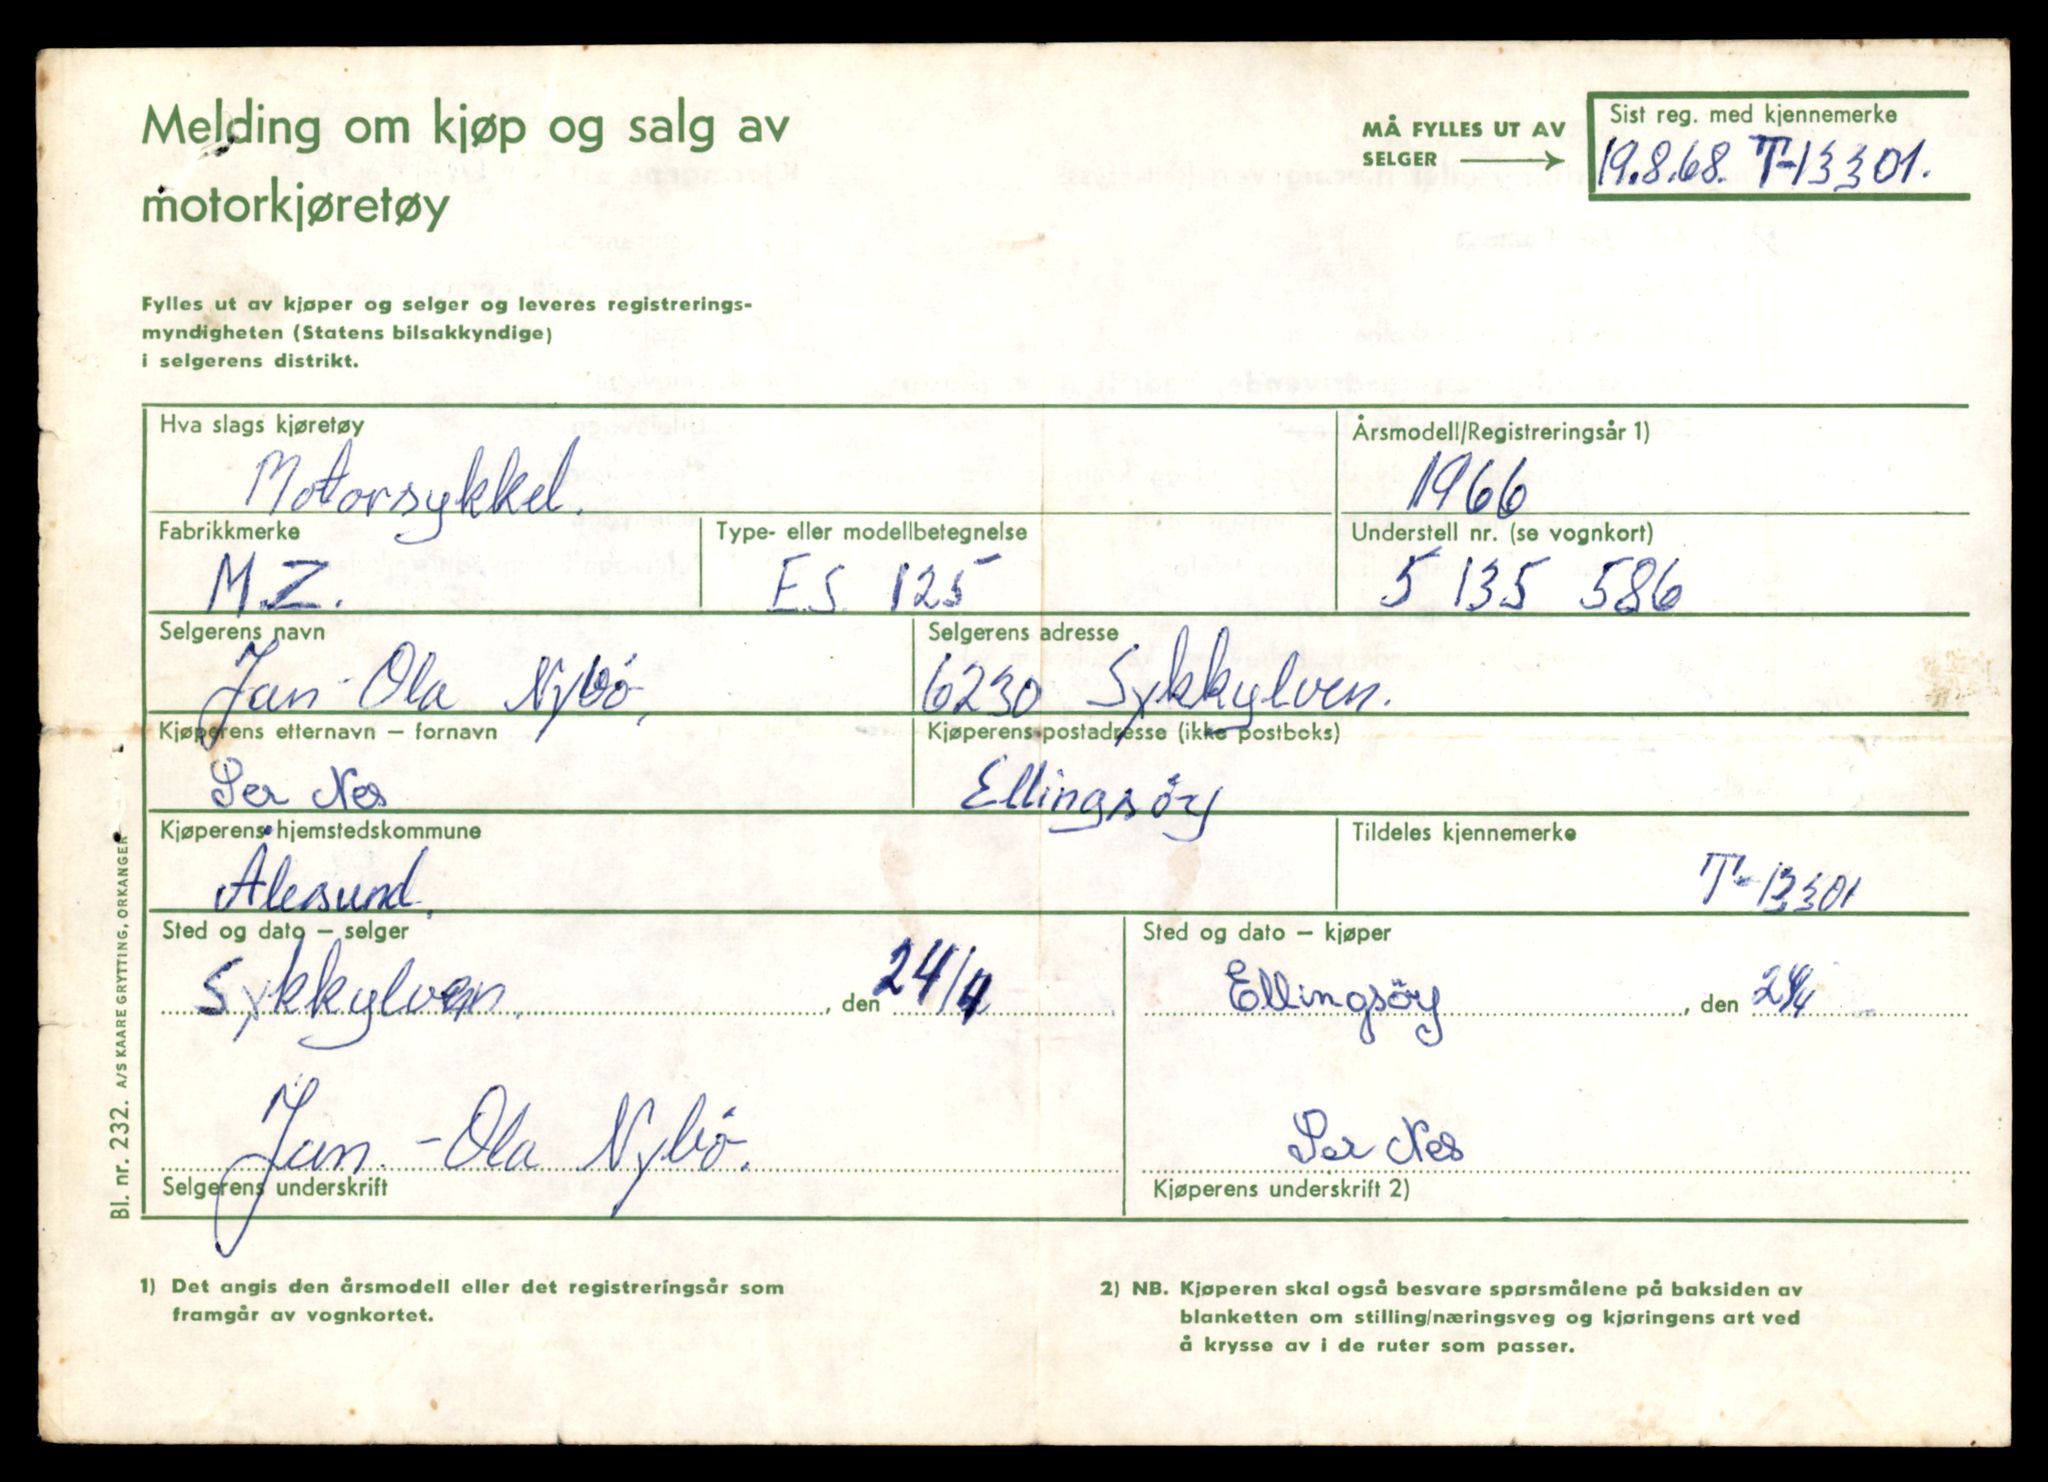 Melding om kjøp og salg av
motorkjøretøy
MÅ FYLLES UT AV
SELGER
Sist reg. med kjennemerke
19.8.68. T-13301.
Fylles ut av kjøper og selger og leveres registrerings-
myndigheten (Statens bilsakkyndige)
i selgerens distrikt.
Hva slags kjøretøy
Motorsykkel.
Årsmodell/Registreringsår 1)
1966
Fabrikkmerke
M.Z.
Type- eller modellbetegnelse
E.S. 125
Understell nr. (se vognkort)
5 135 586
Selgerens navn
Jan-Ola Nybö.
Selgerens adresse
6230 Sykkylven.
Kjøperens etternavn – fornavn
Per Nes
Kjøperens postadresse (ikke postboks)
Ellingsöy
Kjøperens hjemstedskommune
Ålesund.
Tildeles kjennemerke
T-13301
Sted og dato – selger
Sykkylven. , den 24/4
Sted og dato – kjøper
Ellingsöy , den 24/4
Jan-Ola Nybö.
Selgerens underskrift
Per Nes
Kjøperens underskrift 2)
Bl. nr. 232. A/S KAARE GRYTTING, ORKANGER
1) Det angis den årsmodell eller det registreringsår som
framgår av vognkortet.
2) NB. Kjøperen skal også besvare spørsmålene på baksiden av
blanketten om stilling/næringsveg og kjøringens art ved
å krysse av i de ruter som passer.